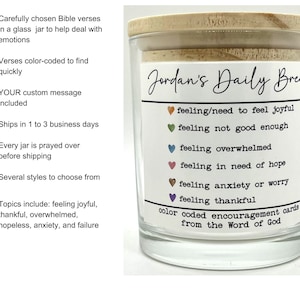 Carefully chosen Bible verses
in a glass jar to help deal with
emotions
Verses color-coded to find
quickly
YOUR custom message
included
Ships in 1 to 3 business days
Every jar is prayed over
before shipping
Several styles to choose from
Topics include: feeling joyful,
thankful, overwhelmed,
hopeless, anxiety, and failure
Jordan's Daily Brea
feeling/need to feel joyful
feeling not good enough
feeling overwhelmed
feeling in need of hope
feeling anxiety or worry
feeling thankful
color coded encouragement cards
from the Word of God